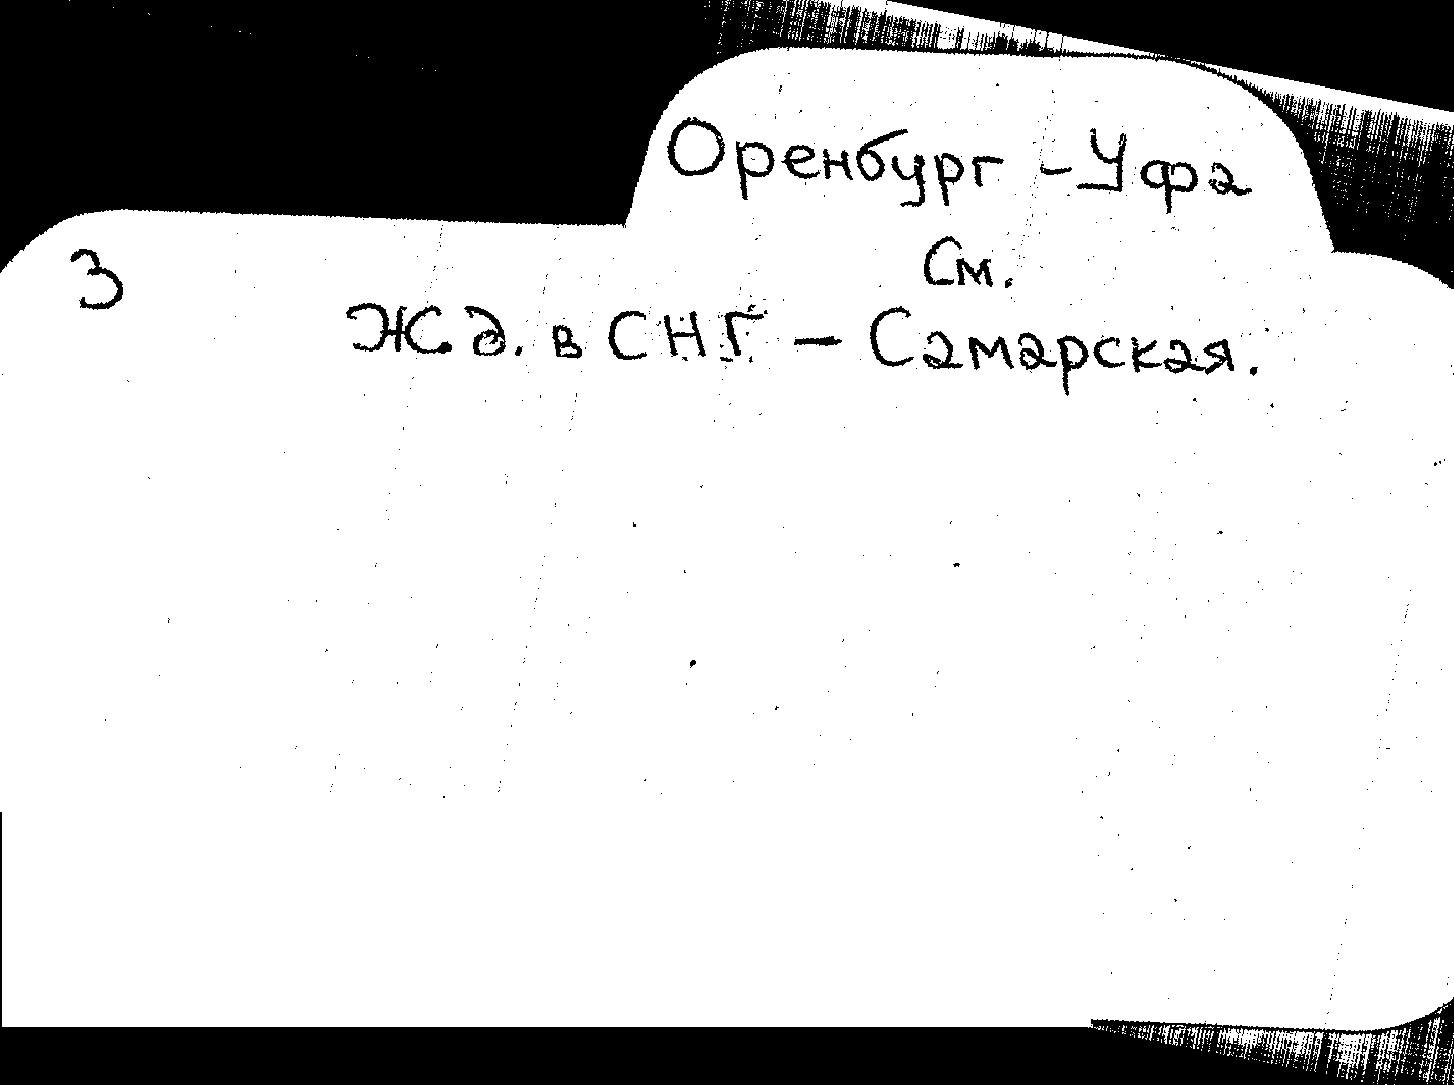 Оренбург - Уфа
См.
3
Ж.д. в СНГ - Самарская.